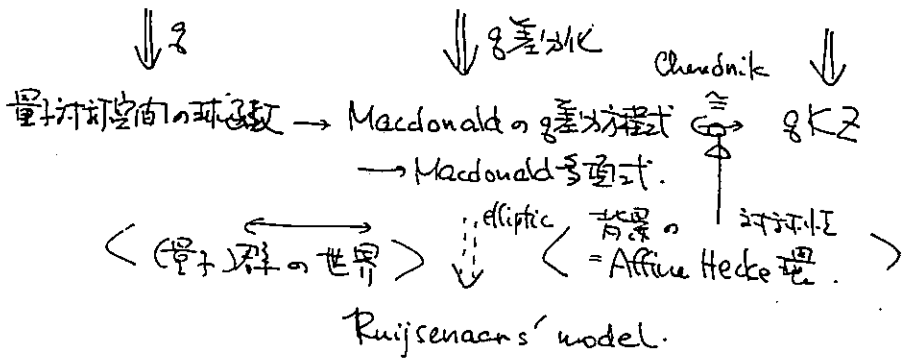 ⇓ q ⇓ q差分化 ⇓
Cherednik
量子対称空間の球函数 → Macdonald の q差分方程式 ≅ ↔ qKZ
→ Macdonald 多項式.
elliptic
< (量子)群の世界 > < 背景の対称性
= Affine Hecke 環. >
Ruijsenaars' model.